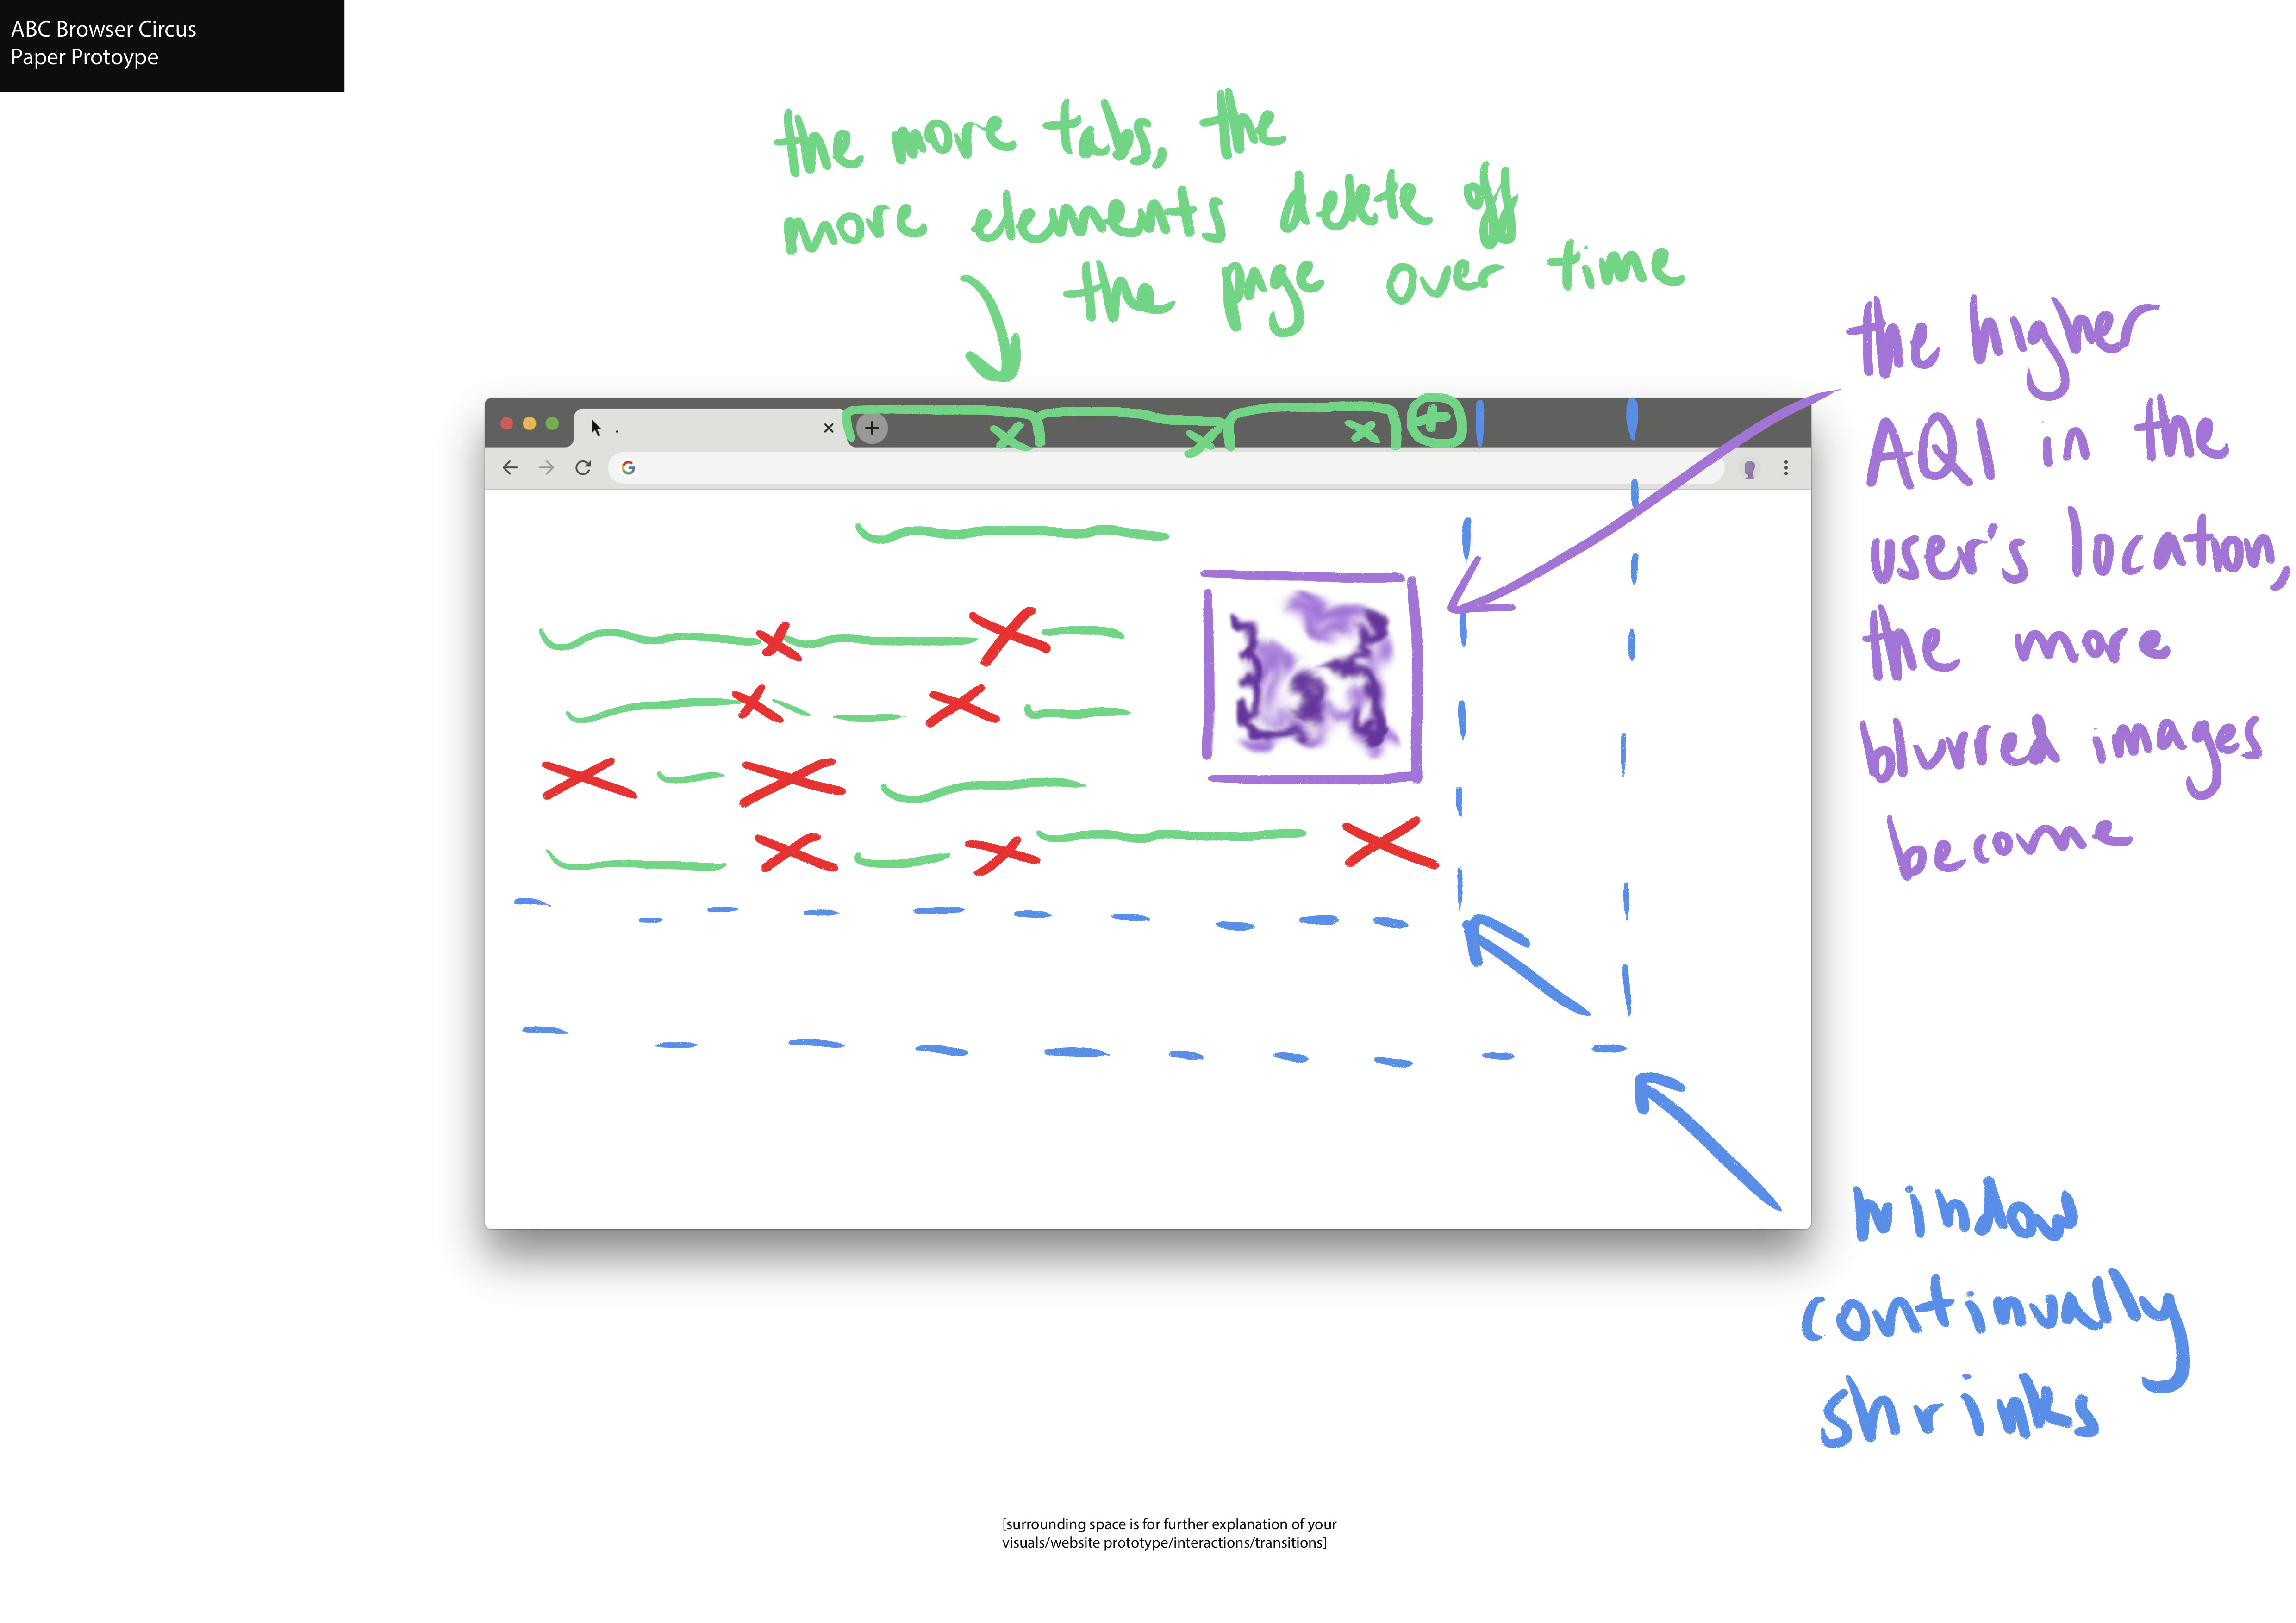 ABC Browser Circus
Paper Protoype
the more tabs, the
more elements delete off
the page over time
the higher
AQI in the
user's location,
the more
blurred images
become
window
continually
shrinks
[surrounding space is for further explanation of your
visuals/website prototype/interactions/transitions]